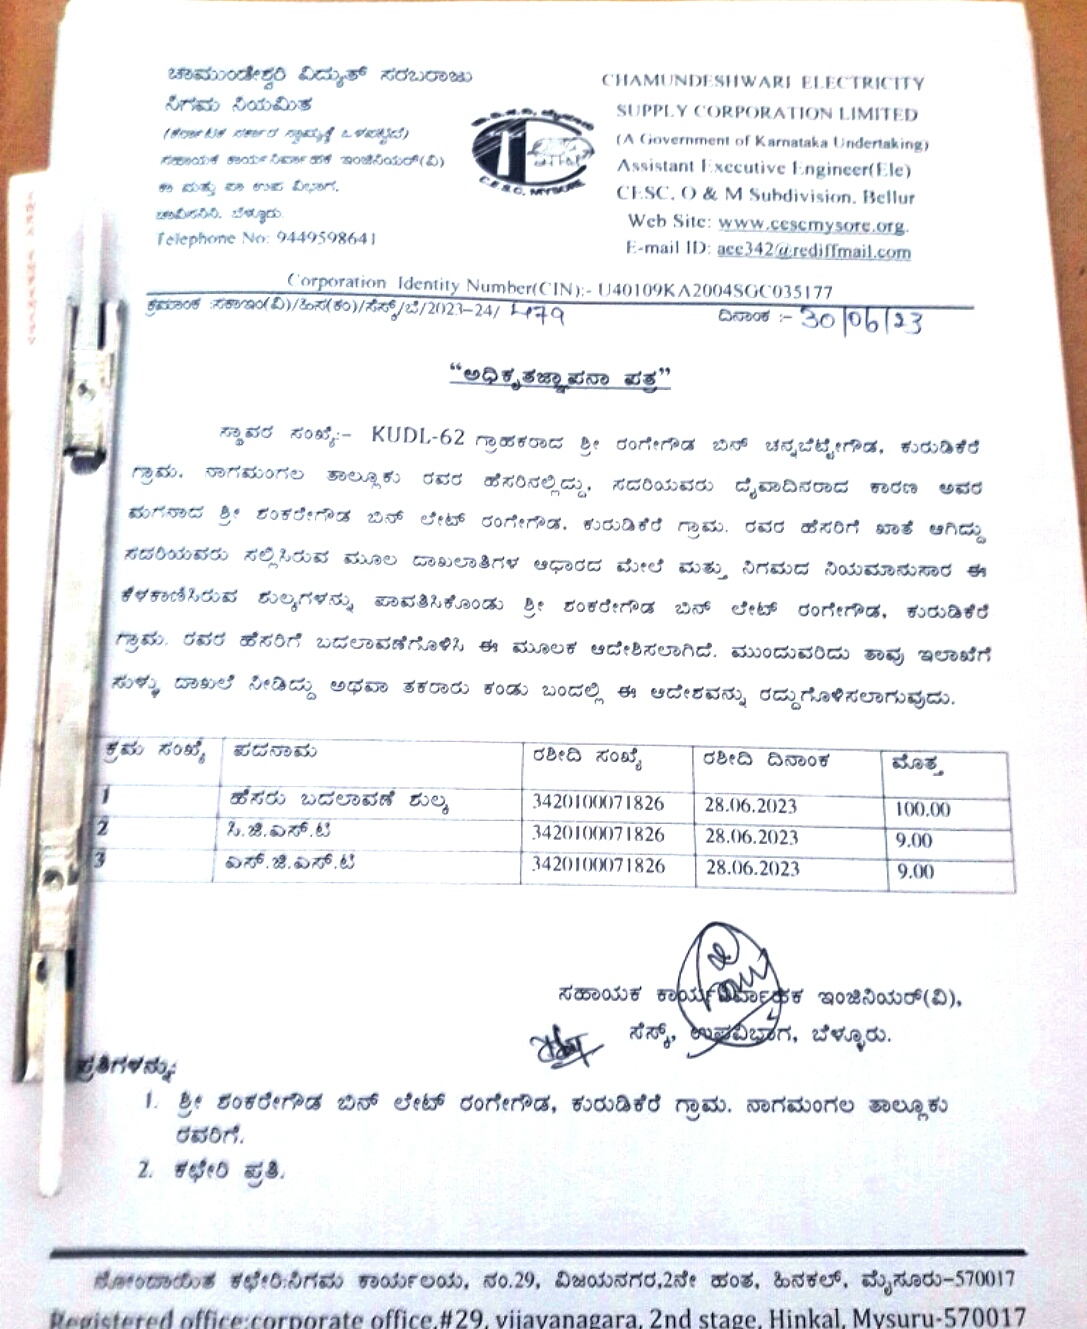 ಚಾಮುಂಡೇಶ್ವರಿ ವಿದ್ಯುತ್ ಸರಬರಾಜು
ನಿಗಮ ನಿಯಮಿತ
(ಕರ್ನಾಟಕ ಸರ್ಕಾರ ಸ್ವಾಮ್ಯಕ್ಕೆ ಒಳಪಟ್ಟಿದೆ)
ಸಹಾಯಕ ಕಾರ್ಯನಿರ್ವಾಹಕ ಇಂಜಿನಿಯರ್(ವಿ)
ಕಾ ಮತ್ತು ಪಾ ಉಪ ವಿಭಾಗ,
ಚಾವಿಸನಿನಿ, ಬೆಳ್ಳೂರು.
Telephone No: 9449598641
C.E.S.C. MYSORE
CHAMUNDESHWARI ELECTRICITY
SUPPLY CORPORATION LIMITED
(A Government of Karnataka Undertaking)
Assistant Executive Engineer(Ele)
CESC, O & M Subdivision, Bellur
Web Site: www.cescmysore.org.
E-mail ID: aee342@rediffmail.com
Corporation Identity Number(CIN):- U40109KA2004SGC035177
ಕ್ರಮಾಂಕ :ಸಕಾಇಂ(ವಿ)/ಹಿಸ(ಕಂ)/ಸೆಸ್ಕ್/ಬೆ/2023-24/ 479 ದಿನಾಂಕ :- 30/06/23
“ಅಧಿಕೃತಜ್ಞಾಪನಾ ಪತ್ರ”
ಸ್ಥಾವರ ಸಂಖ್ಯೆ:- KUDL-62 ಗ್ರಾಹಕರಾದ ಶ್ರೀ ರಂಗೇಗೌಡ ಬಿನ್ ಚನ್ನಬೆಟ್ಟೇಗೌಡ, ಕುರುಡಿಕೆರೆ
ಗ್ರಾಮ. ನಾಗಮಂಗಲ ತಾಲ್ಲೂಕು ರವರ ಹೆಸರಿನಲ್ಲಿದ್ದು, ಸದರಿಯವರು ದೈವಾದಿನರಾದ ಕಾರಣ ಅವರ
ಮಗನಾದ ಶ್ರೀ ಶಂಕರೇಗೌಡ ಬಿನ್ ಲೇಟ್ ರಂಗೇಗೌಡ, ಕುರುಡಿಕೆರೆ ಗ್ರಾಮ. ರವರ ಹೆಸರಿಗೆ ಖಾತೆ ಆಗಿದ್ದು
ಸದರಿಯವರು ಸಲ್ಲಿಸಿರುವ ಮೂಲ ದಾಖಲಾತಿಗಳ ಆಧಾರದ ಮೇಲೆ ಮತ್ತು ನಿಗಮದ ನಿಯಮಾನುಸಾರ ಈ
ಕೆಳಕಾಣಿಸಿರುವ ಶುಲ್ಕಗಳನ್ನು ಪಾವತಿಸಿಕೊಂಡು ಶ್ರೀ ಶಂಕರೇಗೌಡ ಬಿನ್ ಲೇಟ್ ರಂಗೇಗೌಡ, ಕುರುಡಿಕೆರೆ
ಗ್ರಾಮ. ರವರ ಹೆಸರಿಗೆ ಬದಲಾವಣೆಗೊಳಿಸಿ ಈ ಮೂಲಕ ಆದೇಶಿಸಲಾಗಿದೆ. ಮುಂದುವರಿದು ತಾವು ಇಲಾಖೆಗೆ
ಸುಳ್ಳು ದಾಖಲೆ ನೀಡಿದ್ದು ಅಥವಾ ತಕರಾರು ಕಂಡು ಬಂದಲ್ಲಿ ಈ ಆದೇಶವನ್ನು ರದ್ದುಗೊಳಿಸಲಾಗುವುದು.
ಕ್ರಮ ಸಂಖ್ಯೆ ಪದನಾಮ ರಶೀದಿ ಸಂಖ್ಯೆ ರಶೀದಿ ದಿನಾಂಕ ಮೊತ್ತ
1 ಹೆಸರು ಬದಲಾವಣೆ ಶುಲ್ಕ 3420100071826 28.06.2023 100.00
2 ಸಿ.ಜಿ.ಎಸ್.ಟಿ 3420100071826 28.06.2023 9.00
3 ಎಸ್.ಜಿ.ಎಸ್.ಟಿ 3420100071826 28.06.2023 9.00
ಸಹಾಯಕ ಕಾರ್ಯನಿರ್ವಾಹಕ ಇಂಜಿನಿಯರ್(ವಿ),
ಸೆಸ್ಕ್, ಉಪವಿಭಾಗ, ಬೆಳ್ಳೂರು.
ಪ್ರತಿಗಳನ್ನು:
1. ಶ್ರೀ ಶಂಕರೇಗೌಡ ಬಿನ್ ಲೇಟ್ ರಂಗೇಗೌಡ, ಕುರುಡಿಕೆರೆ ಗ್ರಾಮ. ನಾಗಮಂಗಲ ತಾಲ್ಲೂಕು
ರವರಿಗೆ.
2. ಕಛೇರಿ ಪ್ರತಿ.
ನೋಂದಾಯಿತ ಕಛೇರಿ:ನಿಗಮ ಕಾರ್ಯಲಯ, ನಂ.29, ವಿಜಯನಗರ,2ನೇ ಹಂತ, ಹಿನಕಲ್, ಮೈಸೂರು-570017
Registered office:corporate office,#29, vijayanagara, 2nd stage, Hinkal, Mysuru-570017